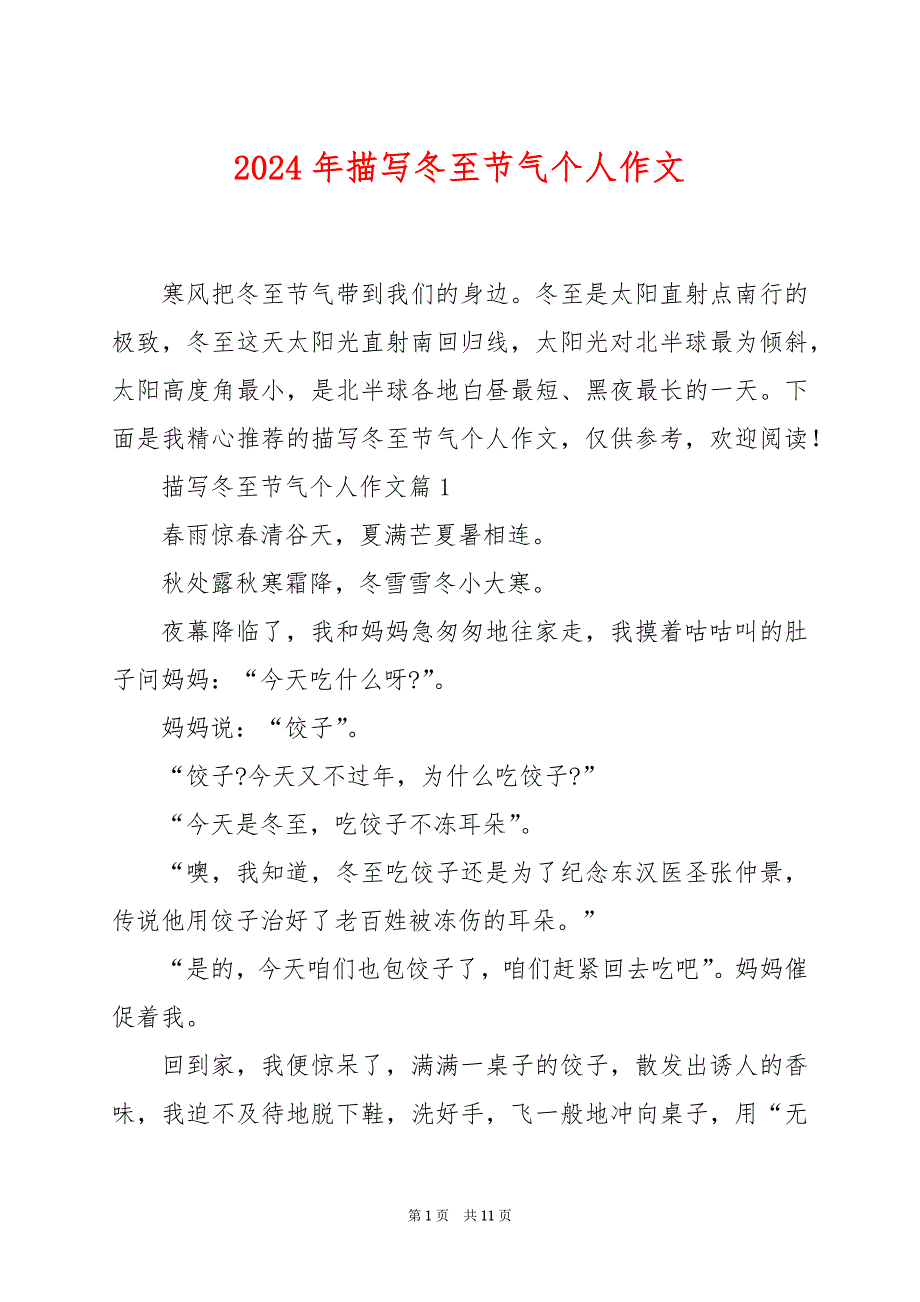 2024 年描写冬至节气个人作文
寒风把冬至节气带到我们的身边。冬至是太阳直射点南行的
极致，冬至这天太阳光直射南回归线，太阳光对北半球最为倾斜，
太阳高度角最小，是北半球各地白昼最短、黑夜最长的一天。下
面是我精心推荐的描写冬至节气个人作文，仅供参考，欢迎阅读！
描写冬至节气个人作文篇 1
春雨惊春清谷天，夏满芒夏暑相连。
秋处露秋寒霜降，冬雪雪冬小大寒。
夜幕降临了，我和妈妈急匆匆地往家走，我摸着咕咕叫的肚
子问妈妈：“今天吃什么呀?”。
妈妈说：“饺子”。
“饺子?今天又不过年，为什么吃饺子?”
“今天是冬至，吃饺子不冻耳朵”。
“噢，我知道，冬至吃饺子还是为了纪念东汉医圣张仲景，
传说他用饺子治好了老百姓被冻伤的耳朵。”
“是的，今天咱们也包饺子了，咱们赶紧回去吃吧”。妈妈催
促着我。
回到家，我便惊呆了，满满一桌子的饺子，散发出诱人的香
味，我迫不及待地脱下鞋，洗好手，飞一般地冲向桌子，用“无
第 1 页 共 11 页